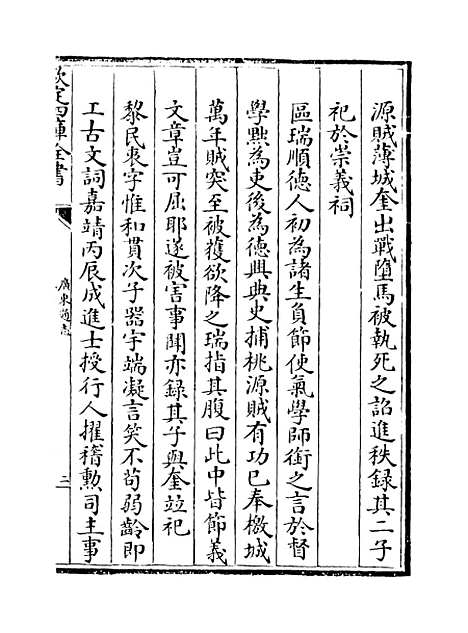 源賊薄城奎出戰墮馬被執死之詔進秩録其二子
祀於崇義祠
區瑞順德人初為諸生負節使氣學師銜之言於督
學黜為吏後為德興典史捕桃源賊有功已奉檄城
萬年賊突至被獲欲降之瑞指其腹曰此中皆節義
文章豈可屈耶遂被害事聞亦録其子與奎竝祀
黎民表字惟和貫次子器宇端凝言笑不苟弱齡即
工古文詞嘉靖丙辰成進士授行人擢稽勲司主事
欽定四庫全書
廣東通志
三